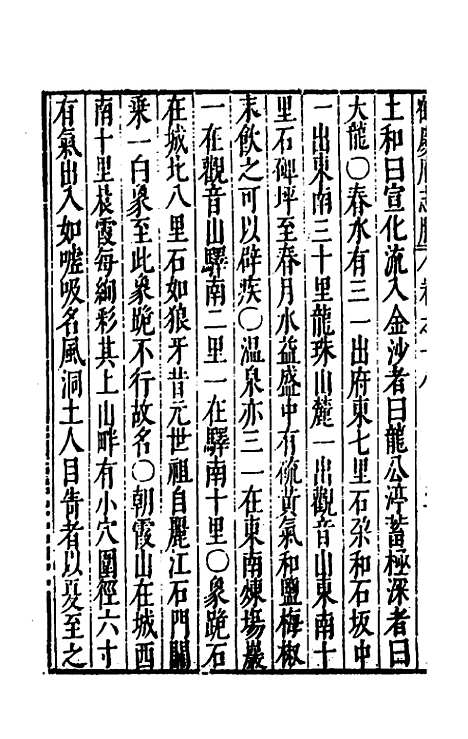 土和曰宣化流入金沙者曰龍公渟蓄極深者曰
大龍〇春水有三一出府東七里石朶和石坂中
一出東南三十里龍珠山麓一出觀音山東南十
里石碑坪至春月水益盛中有硫黃氣和鹽梅椒
末飲之可以辟疾〇溫泉亦三一在東南煉場巖
一在觀音山驛南二里一在驛南十里〇象跪石
在城北八里石如狼牙昔元世祖自麗江石門關
乘一白象至此象跪不行故名〇朝霞山在城西
南十里晨霞每絢彩其上山畔有小穴圍徑六寸
有氣出入如噓吸名風洞土人目眚者以夏至之